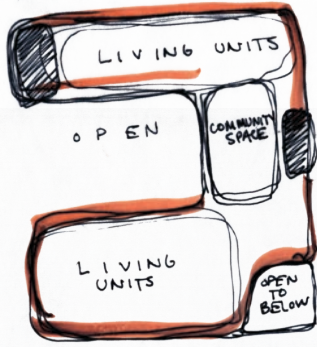 LIVING UNITS
OPEN
COMMUNITY
SPACE
LIVING
UNITS
OPEN
TO
BELOW